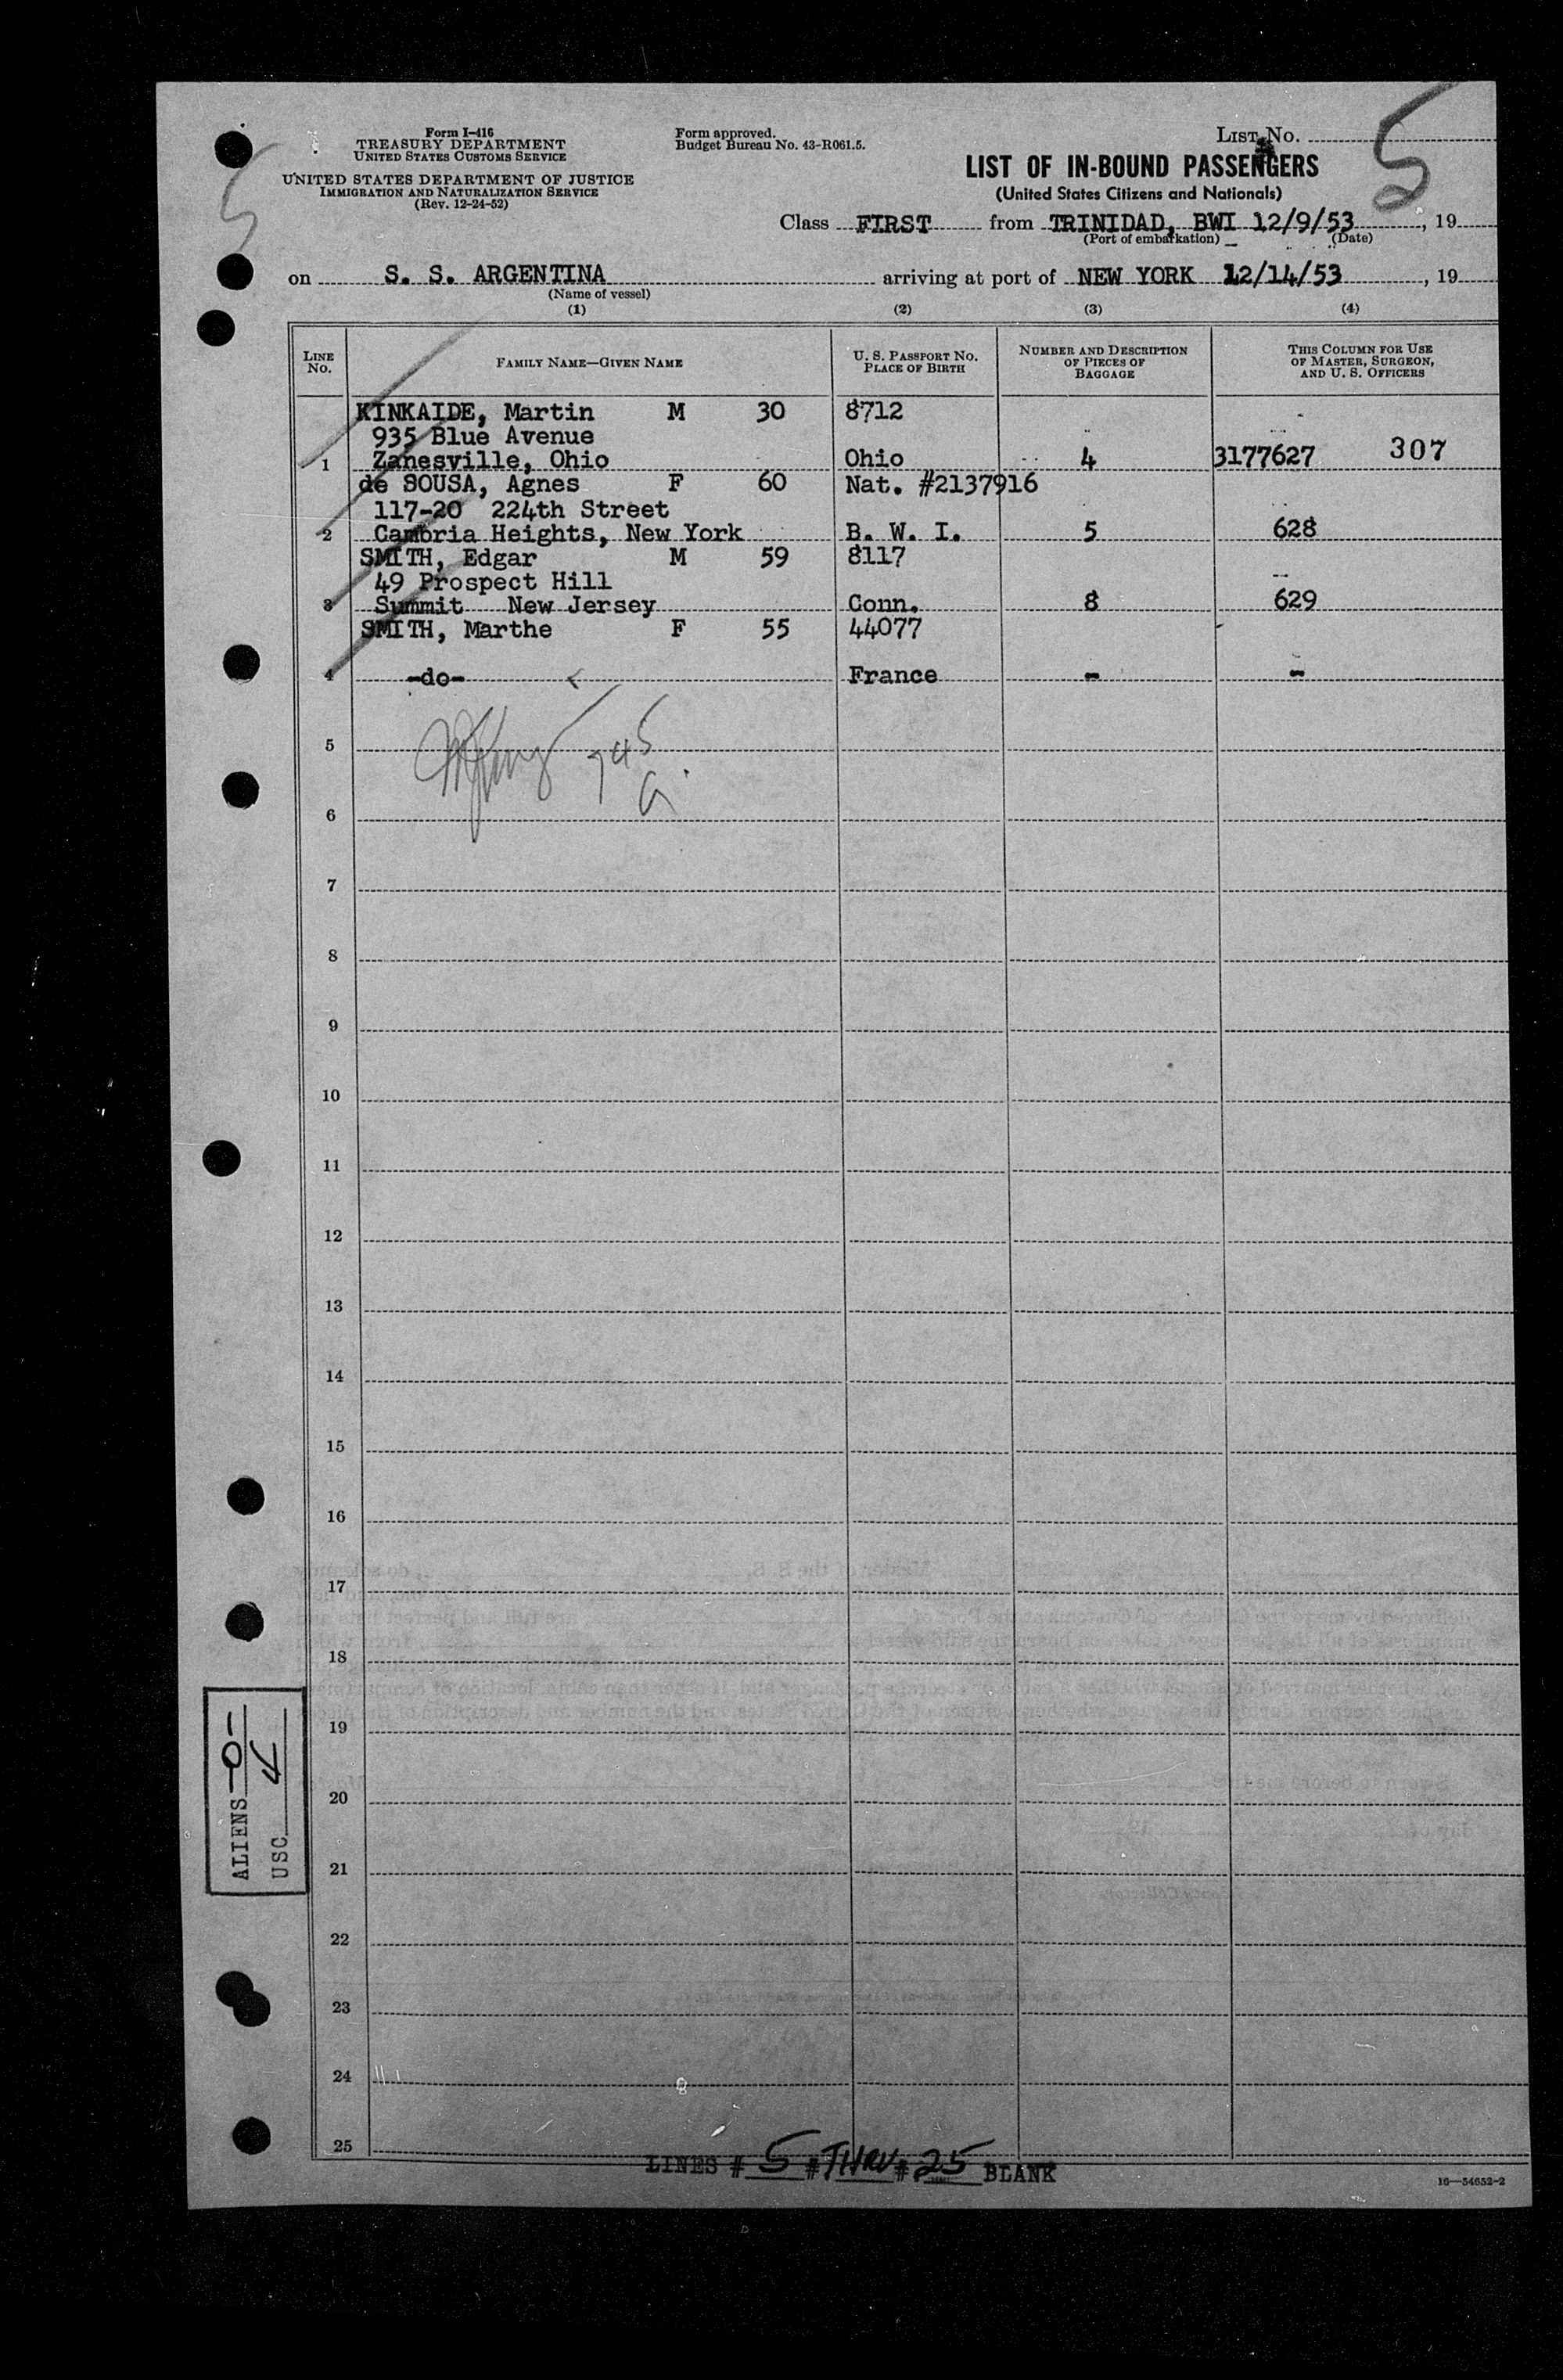 Form I-416
TREASURY DEPARTMENT
UNITED STATES CUSTOMS SERVICE
UNITED STATES DEPARTMENT OF JUSTICE
IMMIGRATION AND NATURALIZATION SERVICE
(Rev. 12-24-52)
Form approved.
Budget Bureau No. 43-R061.5.
LIST No. 5
LIST OF IN-BOUND PASSENGERS
(United States Citizens and Nationals)
Class FIRST from TRINIDAD, BWI 12/9/53, 19
(Port of embarkation) (Date)
on S. S. ARGENTINA arriving at port of NEW YORK 12/14/53, 19
(Name of vessel)
(1) (2) (3) (4)
LINE No. FAMILY NAME—GIVEN NAME U. S. PASSPORT NO. PLACE OF BIRTH NUMBER AND DESCRIPTION OF PIECES OF BAGGAGE THIS COLUMN FOR USE OF MASTER, SURGEON, AND U. S. OFFICERS
KINKAIDE, Martin M 30 8712
935 Blue Avenue
1 Zanesville, Ohio Ohio 4 3177627 307
de SOUSA, Agnes F 60 Nat. #2137916
117-20 224th Street
2 Cambria Heights, New York B. W. I. 5 628
SMITH, Edgar M 59 8117
49 Prospect Hill
3 Summit New Jersey Conn. 8 629
SMITH, Marthe F 55 44077
4 -do- France - -
5 745
6
7
8
9
10
11
12
13
14
15
16
17
18
19
20
21
22
23
24
25
ALIENS -0-
USC 4
LINES # 5 # THRU # 25 BLANK
16—54652-2